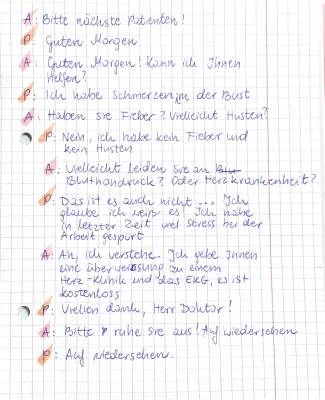 A: Bitte nächste Patienten!
P: Guten Morgen
A: Guten Morgen! Kann ich Ihnen
helfen?
P: Ich habe Schmerzen in der Bust
A: Haben sie Fieber? Vielleicht Husten?
P: Nein, ich habe kein Fieber und
kein Husten
A: Vielleicht leiden sie an
Bluthondruck? Oder Herzkrankenheit?
P: Das ist es auch nicht... Ich
glaube ich weiß es! Ich habe
in letzter Zeit viel Stress bei der
Arbeit gespürt
A: Ah, ich verstehe. Ich gebe Ihnen
eine überweisung zu einem
Herz-Klinik und das EKG, es ist
kostenloss
P: Vielen dank, Herr Doktor!
A: Bitte ruhe sie aus! Auf wiedersehen
P: Auf wiedersehen.